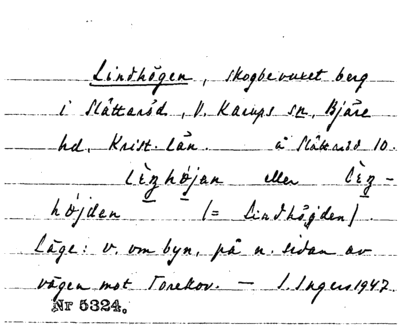 Lindhögen, skogbevuxet berg
i Slättaröd, V. Karups sn, Bjäre
hd, Krist. län. å Slättaröd 10.
lèŋhöjan eller lèŋ-
höjden (= Lindhöjden).
Läge: v. om byn, på n. sidan av
vägen mot Torekov. — I. Ingers 1947.
Nr 5324.